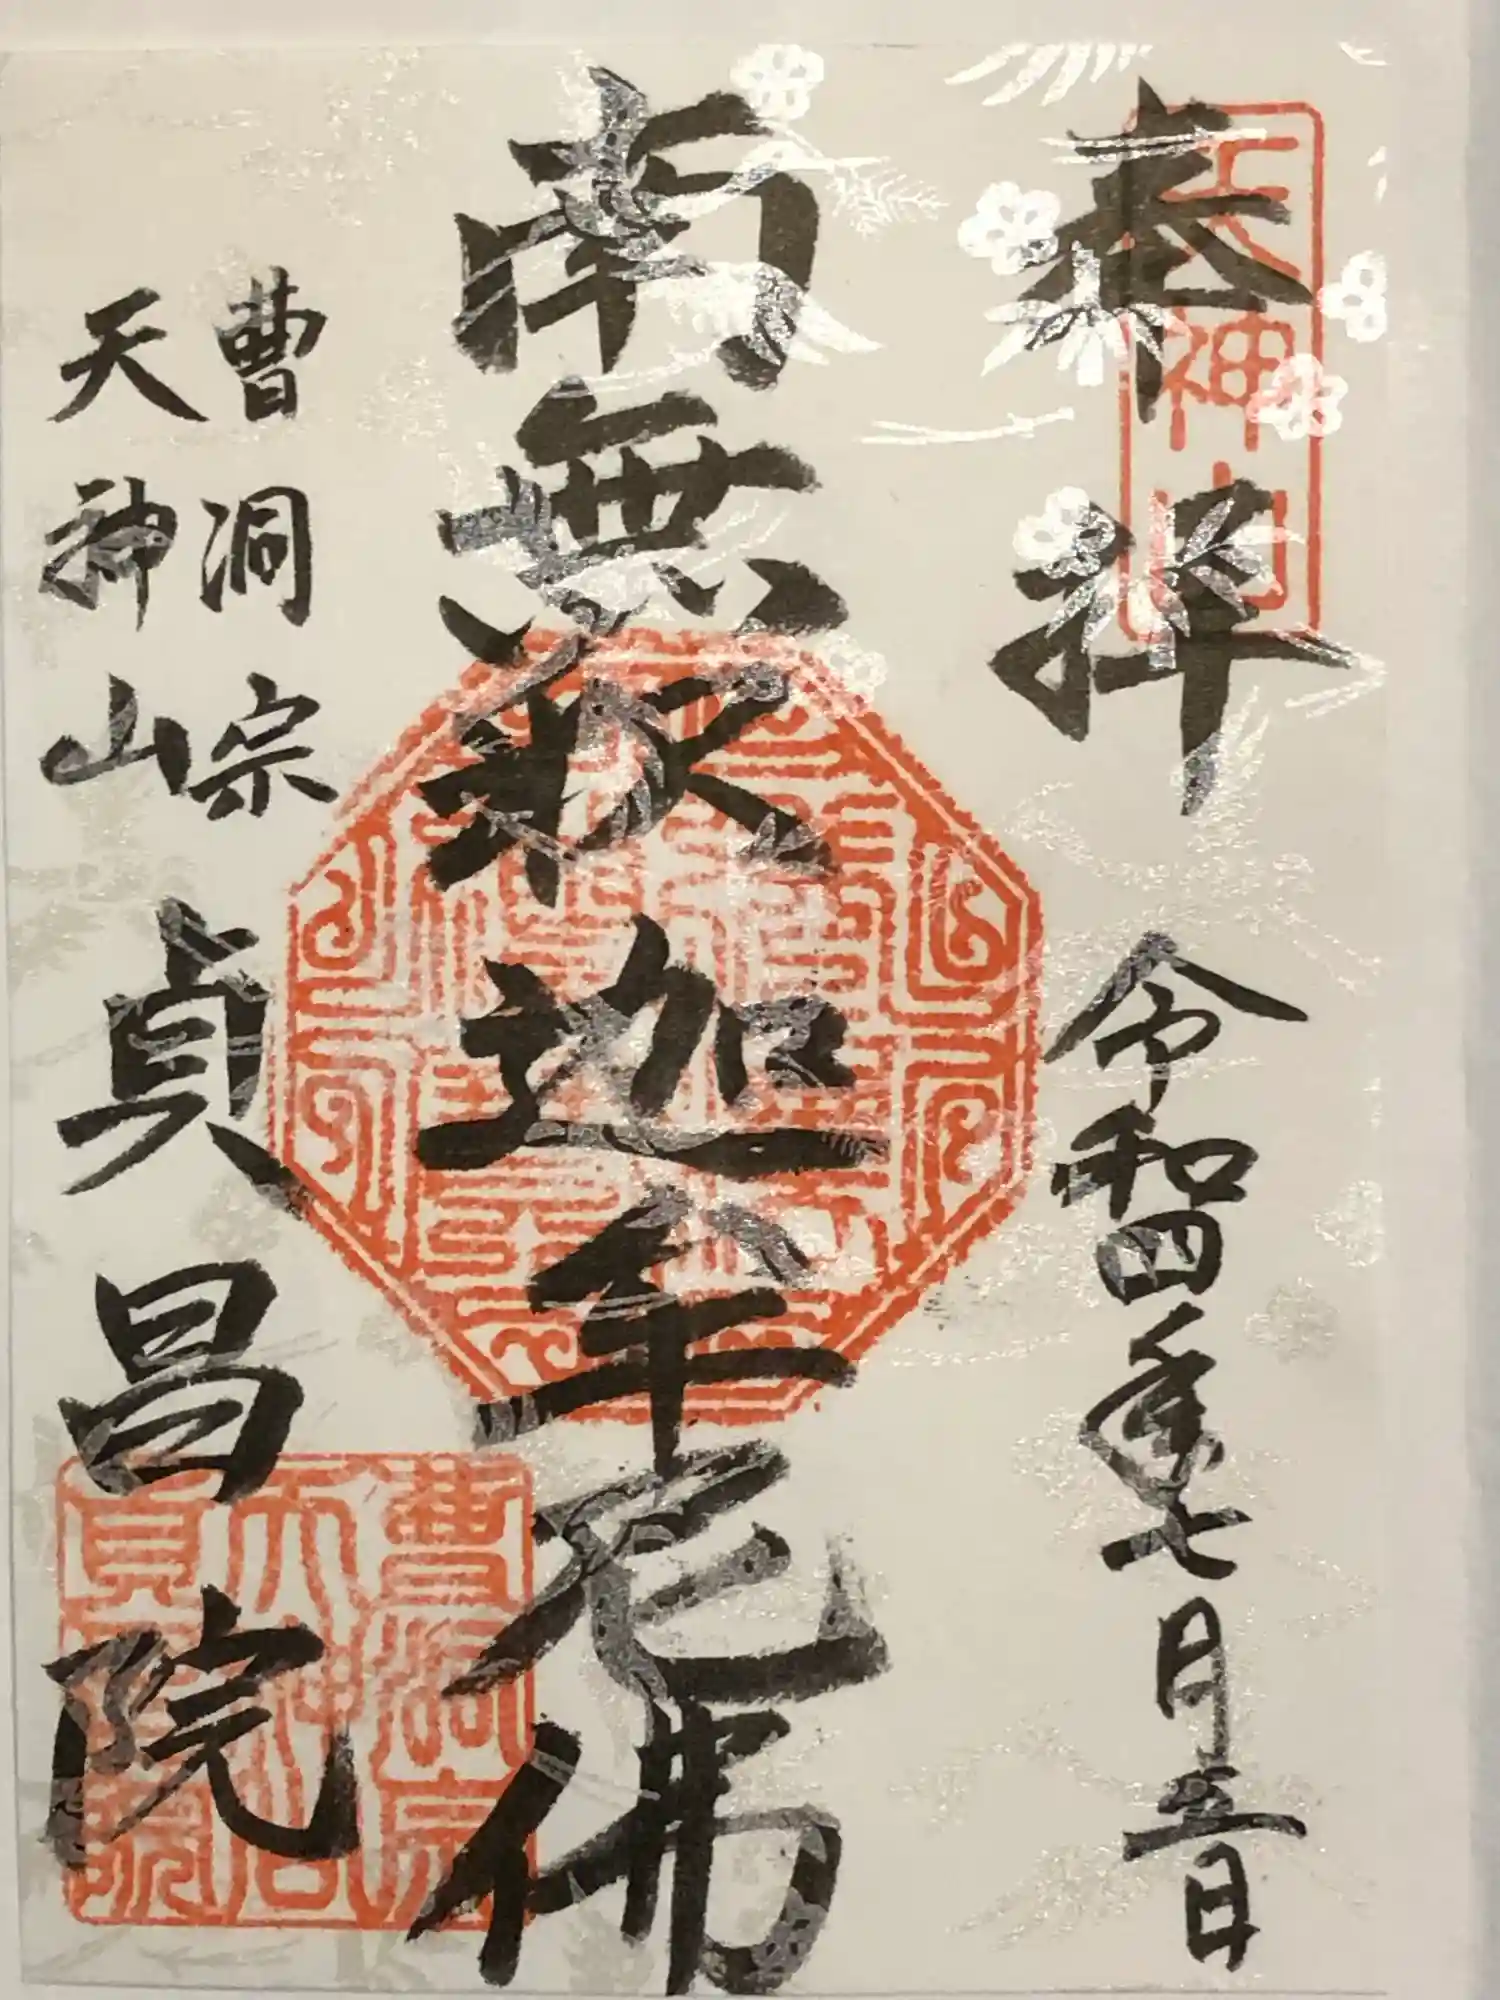 奉拝
令和四年七月五日
南無釈迦牟尼佛
曹洞宗
天神山
貞昌院
天神山
曹洞宗
天神山
貞昌院